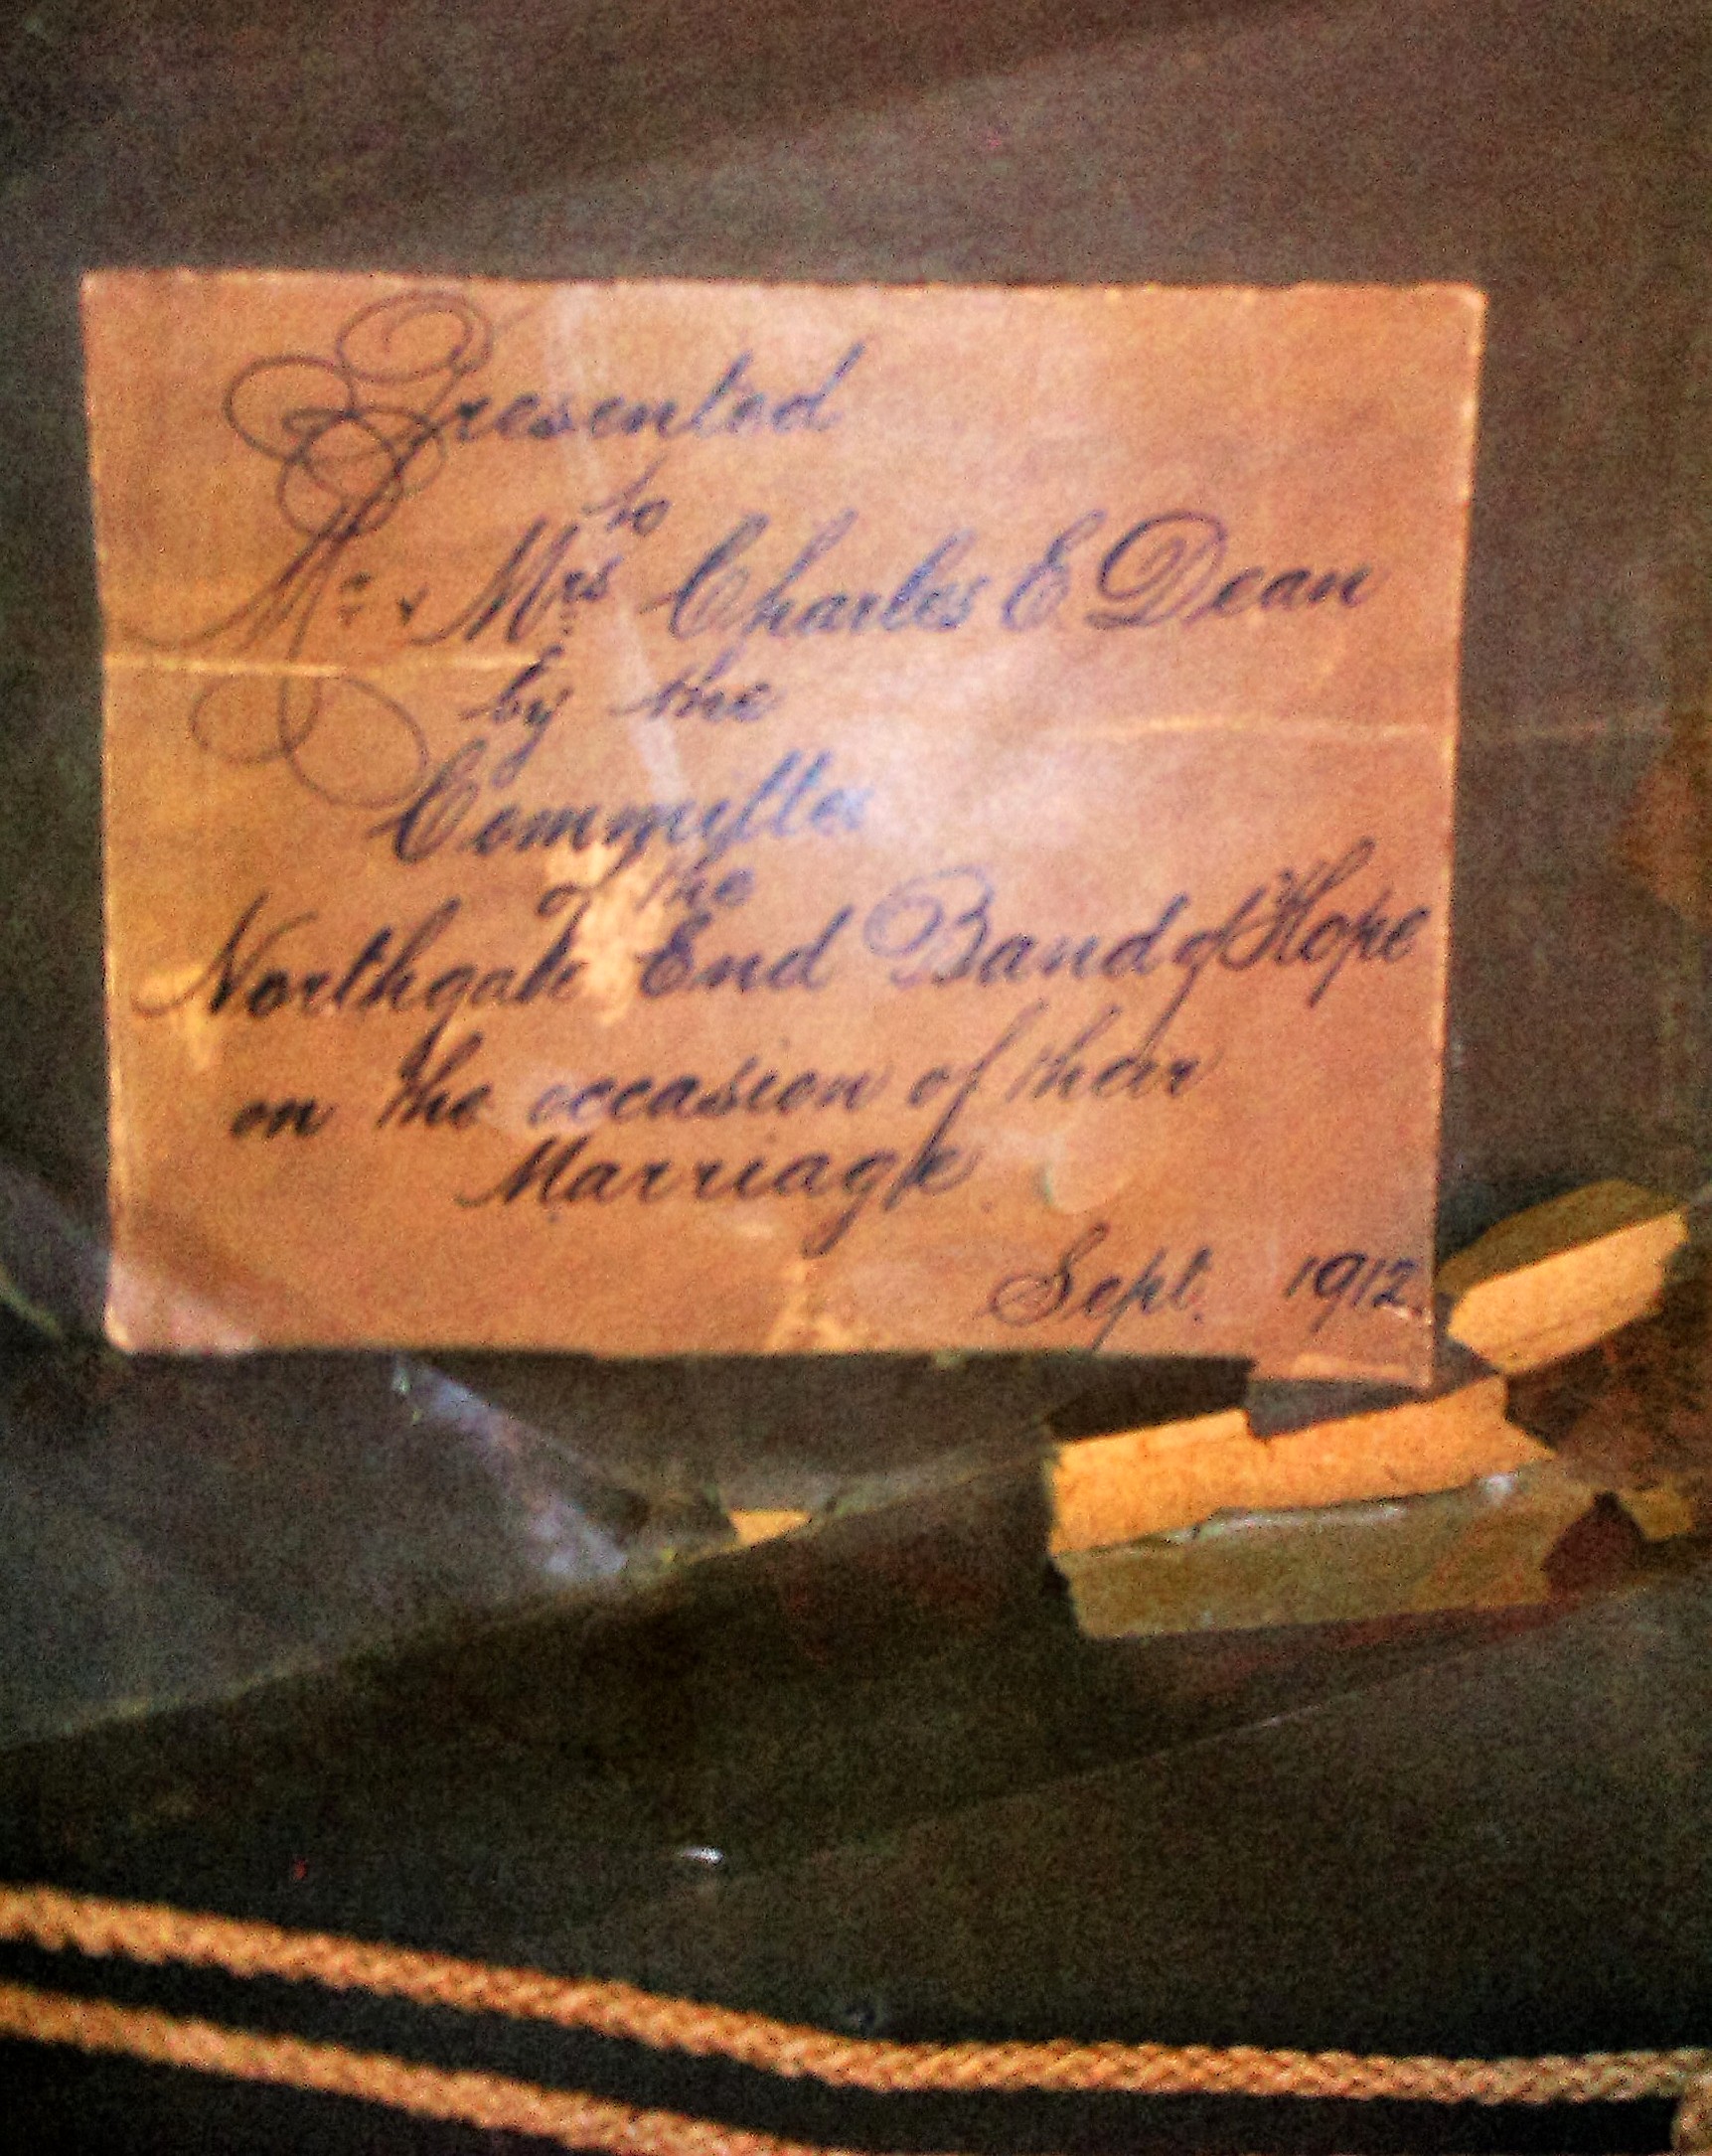 Presented
to
Mr. & Mrs. Charles E. Dean
by the
Committee
of the
Northgate End Band of Hope
on the occasion of their
Marriage.
Sept. 1912.